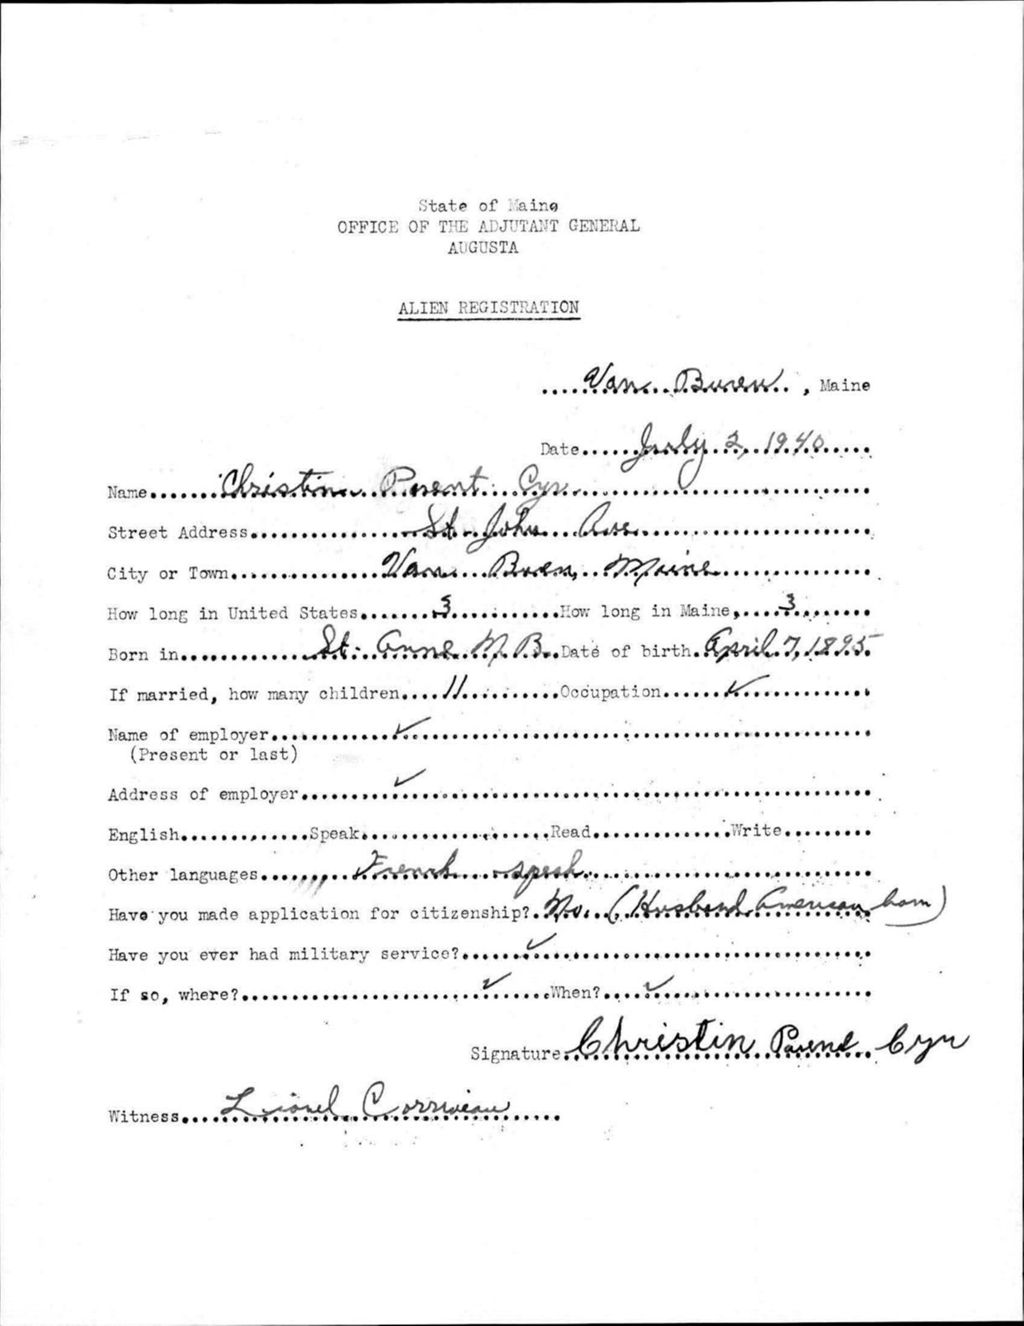 State of Maine
OFFICE OF THE ADJUTANT GENERAL
AUGUSTA
ALIEN REGISTRATION
Van Buren, Maine
Date July 2, 1940
Name Christine Parent Cyr
Street Address St. John Ave
City or Town Van Buren, Maine
How long in United States 3 How long in Maine 3
Born in St. Anne N. B. Date of birth April 7, 1895
If married, how many children 11 Occupation ✓
Name of employer ✓
(Present or last)
Address of employer ✓
English Speak Read Write
Other languages French speak
Have you made application for citizenship? No. (Husband American born)
Have you ever had military service? ✓
If so, where? ✓ When? ✓
Signature Christin Parent Cyr
Witness Lionel Corriveau